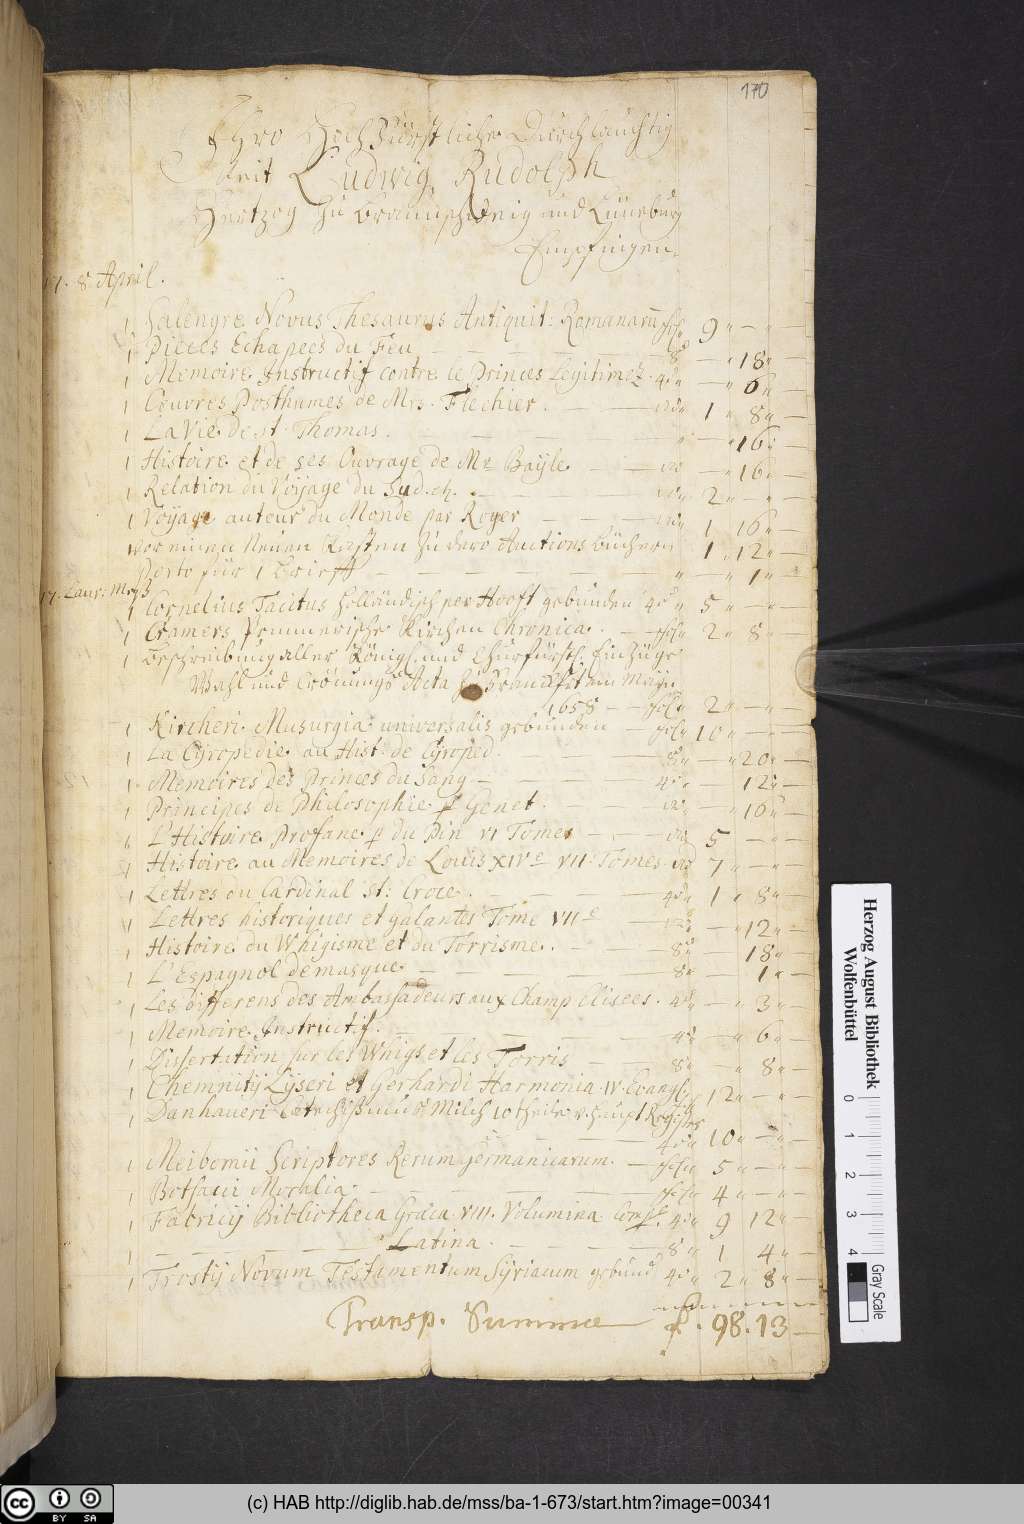 170
Ihro Hochfürstliche Durchlauchtig
keit Ludwig Rudolph
Hertzog zu Braunschweig und Lüneburg
Empfingen.
17. 8 April.
1 Salengre Novus Thesaurus Antiquit: Romanarū fol. 9 — —
1 Pieces Echapees du Feu — 8° — 18 —
1 Memoire Instructif contre le Princes Legitimez. 4to — 6 —
1 Oeuvres Posthumes de Mrs. Flechier. — 1 8 —
1 La Vie de St. Thomas. — 16 —
1 Histoire et de ses Ouvrage de Mr Bayle — 16 —
1 Relation du Voyage du Sud. — 2 — —
1 Voyage auteur du Monde par Roger — 1 16 —
vor einen Neuen Kasten zu dero Auctions Büchern 1 12 —
Porto für 1 Brieff — 1 —
17. Laur: Mess
1 Cornelius Tacitus holländisch per Hooft gebunden 4to 5 — —
1 Cramers Pommerische Kirchen Chronica. — fol. 2 8 —
1 Beschreibung aller Königl. und Churfürstl. Einzüge
Wahl und Crönungs Acta zu Franckfurt am Mayn
1658 — fol. 2 — —
1 Kircheri Musurgia universalis gebunden — fol. 10 — —
1 La Cyropedie au Hist. de Cyroped. — 8° — 20 —
1 Memoires des Princes du Sang — 4to — 12 —
1 Principes de Philosophie p Genet. — 16 —
6 L'Histoire Profane p du Pin VI Tomes — 5 — —
1 Histoire au Memoires de Louis XIVe VII Tomes 7 — —
1 Lettres du Cardinal St: Croce. — 4to 1 8 —
1 Lettres historiques et galantes Tome VIIe — 12 —
1 Histoire du Whigisme et du Torrisme. — 8° — 18 —
1 L'Espagnol demasque — 8° — 1 —
1 Les differens des Ambassadeurs aux Champ Elisees. 4to — 3 —
1 Memoire Instructif. — 4to — 6 —
1 Dissertation sur les Whigs et les Torris — 8° — 8 —
1 Chemnitij Lyseri et Gerhardi Harmonia IV Evangl. 12 — —
1 Danhaueri Catechismus Milch 10 theile Haupt Register
4to 10 — —
1 Meibomii Scriptores Rerum Germanicarum. — fol. 5 — —
1 Botsacii Moralia — fol. 4 — —
1 Fabricij Bibliotheca Graeca VIII. Volumina 4to 9 12 —
1 — Latina. — 8° 1 4 —
1 Trostij Novum Testamentum Syriacum gebund 4to 2 8 —
Transp. Summa 98. 13 —
Herzog August Bibliothek
Wolfenbüttel
0 1 2 3 4
Gray Scale
CC BY SA
(c) HAB http://diglib.hab.de/mss/ba-1-673/start.htm?image=00341